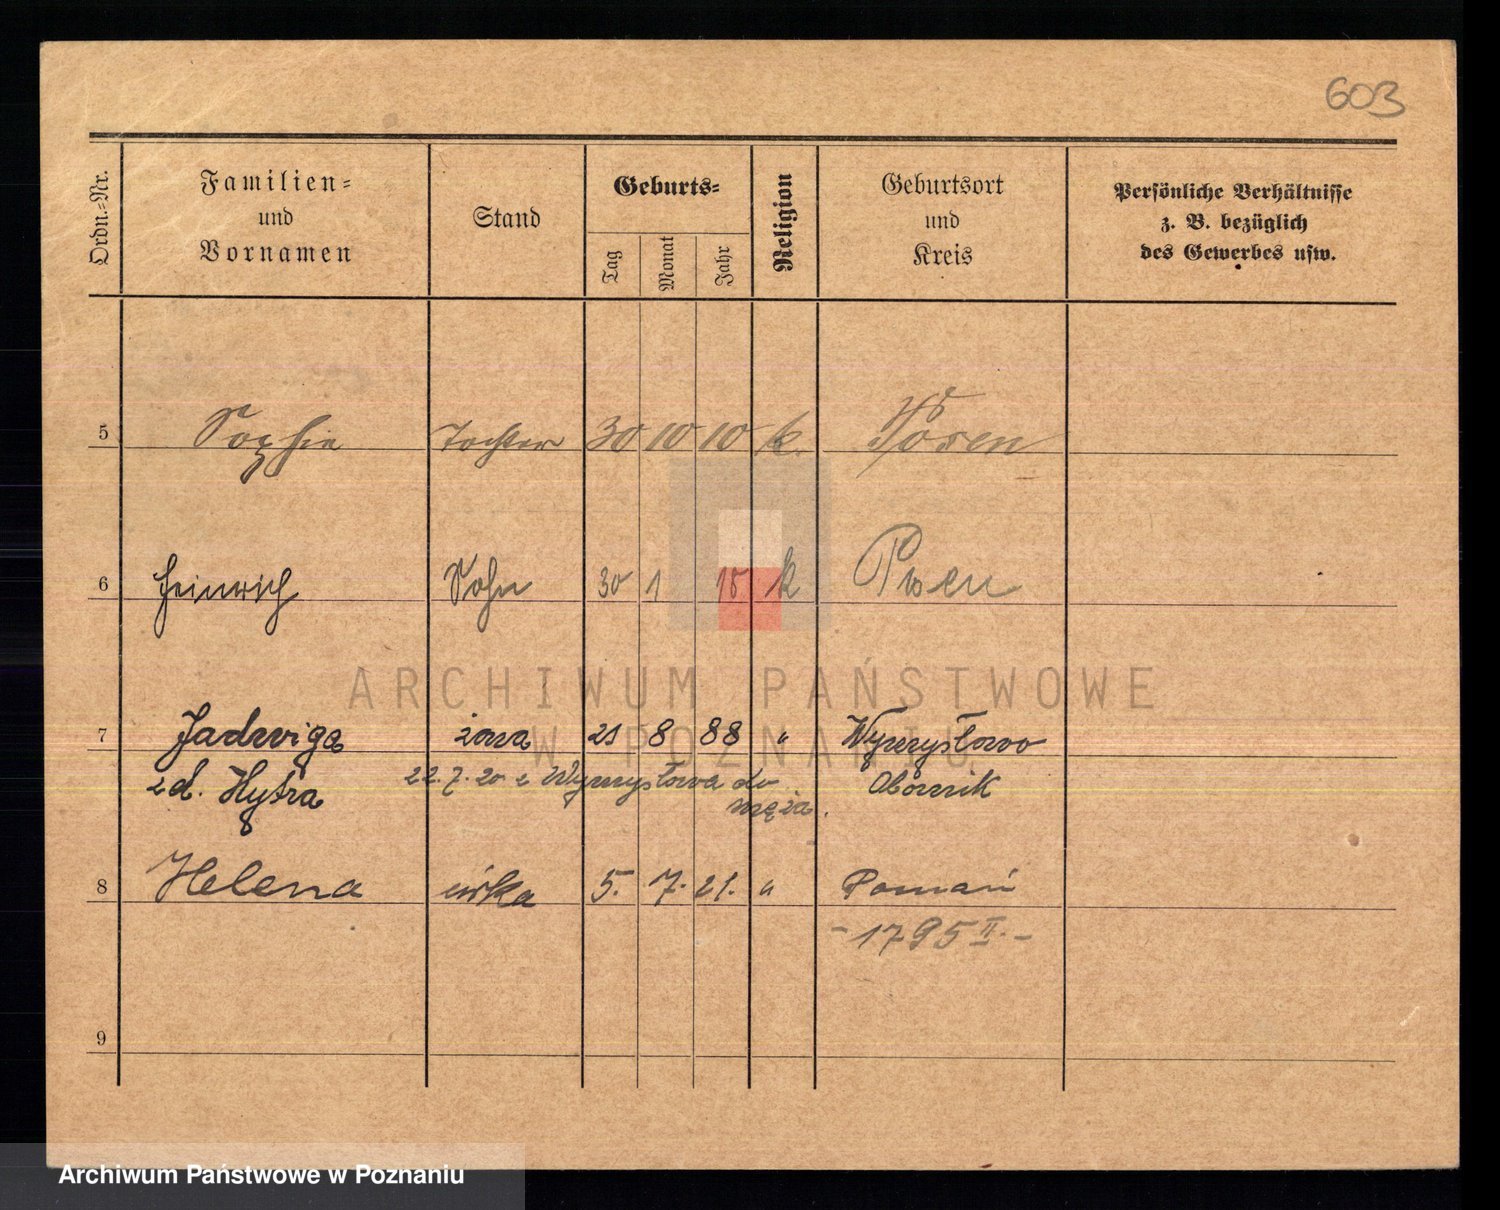 603
Ordn.-Nr.
Familien-
und
Vornamen
Stand
Geburts-
Tag
Monat
Jahr
Religion
Geburtsort
und
Kreis
Persönliche Verhältnisse
z. B. bezüglich
des Gewerbes usw.
5 Sophie Tochter 30 10 10 k. Posen
6 Heinrich Sohn 30 1 15 k Posen
ARCHIWUM PAŃSTWOWE
W POZNANIU
7 Jadwiga żona 21 8 88 " Wymysłowo
zd. Hytra 22.7.20 z Wymysłowa do Obornik
męża.
8 Helena córka 5. 7. 21. " Poznań
- 1795 II. -
9
Archiwum Państwowe w Poznaniu